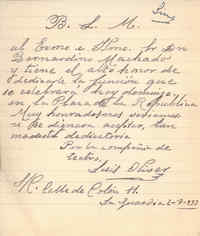 B. L. M.
al Exmo e Ilmo. Sr. Don
Bernardino Machado
y tiene el alto honor de
dedicarle la función que
se celebrará hoy domingo,
en la Plaza de la República
Muy honradores seriamos
si se dignara aceptar, tan
modesta dedicatoria
Por la compañia de
teatro,
Luis Oliver
Calle de Colón 11.
La Guardia